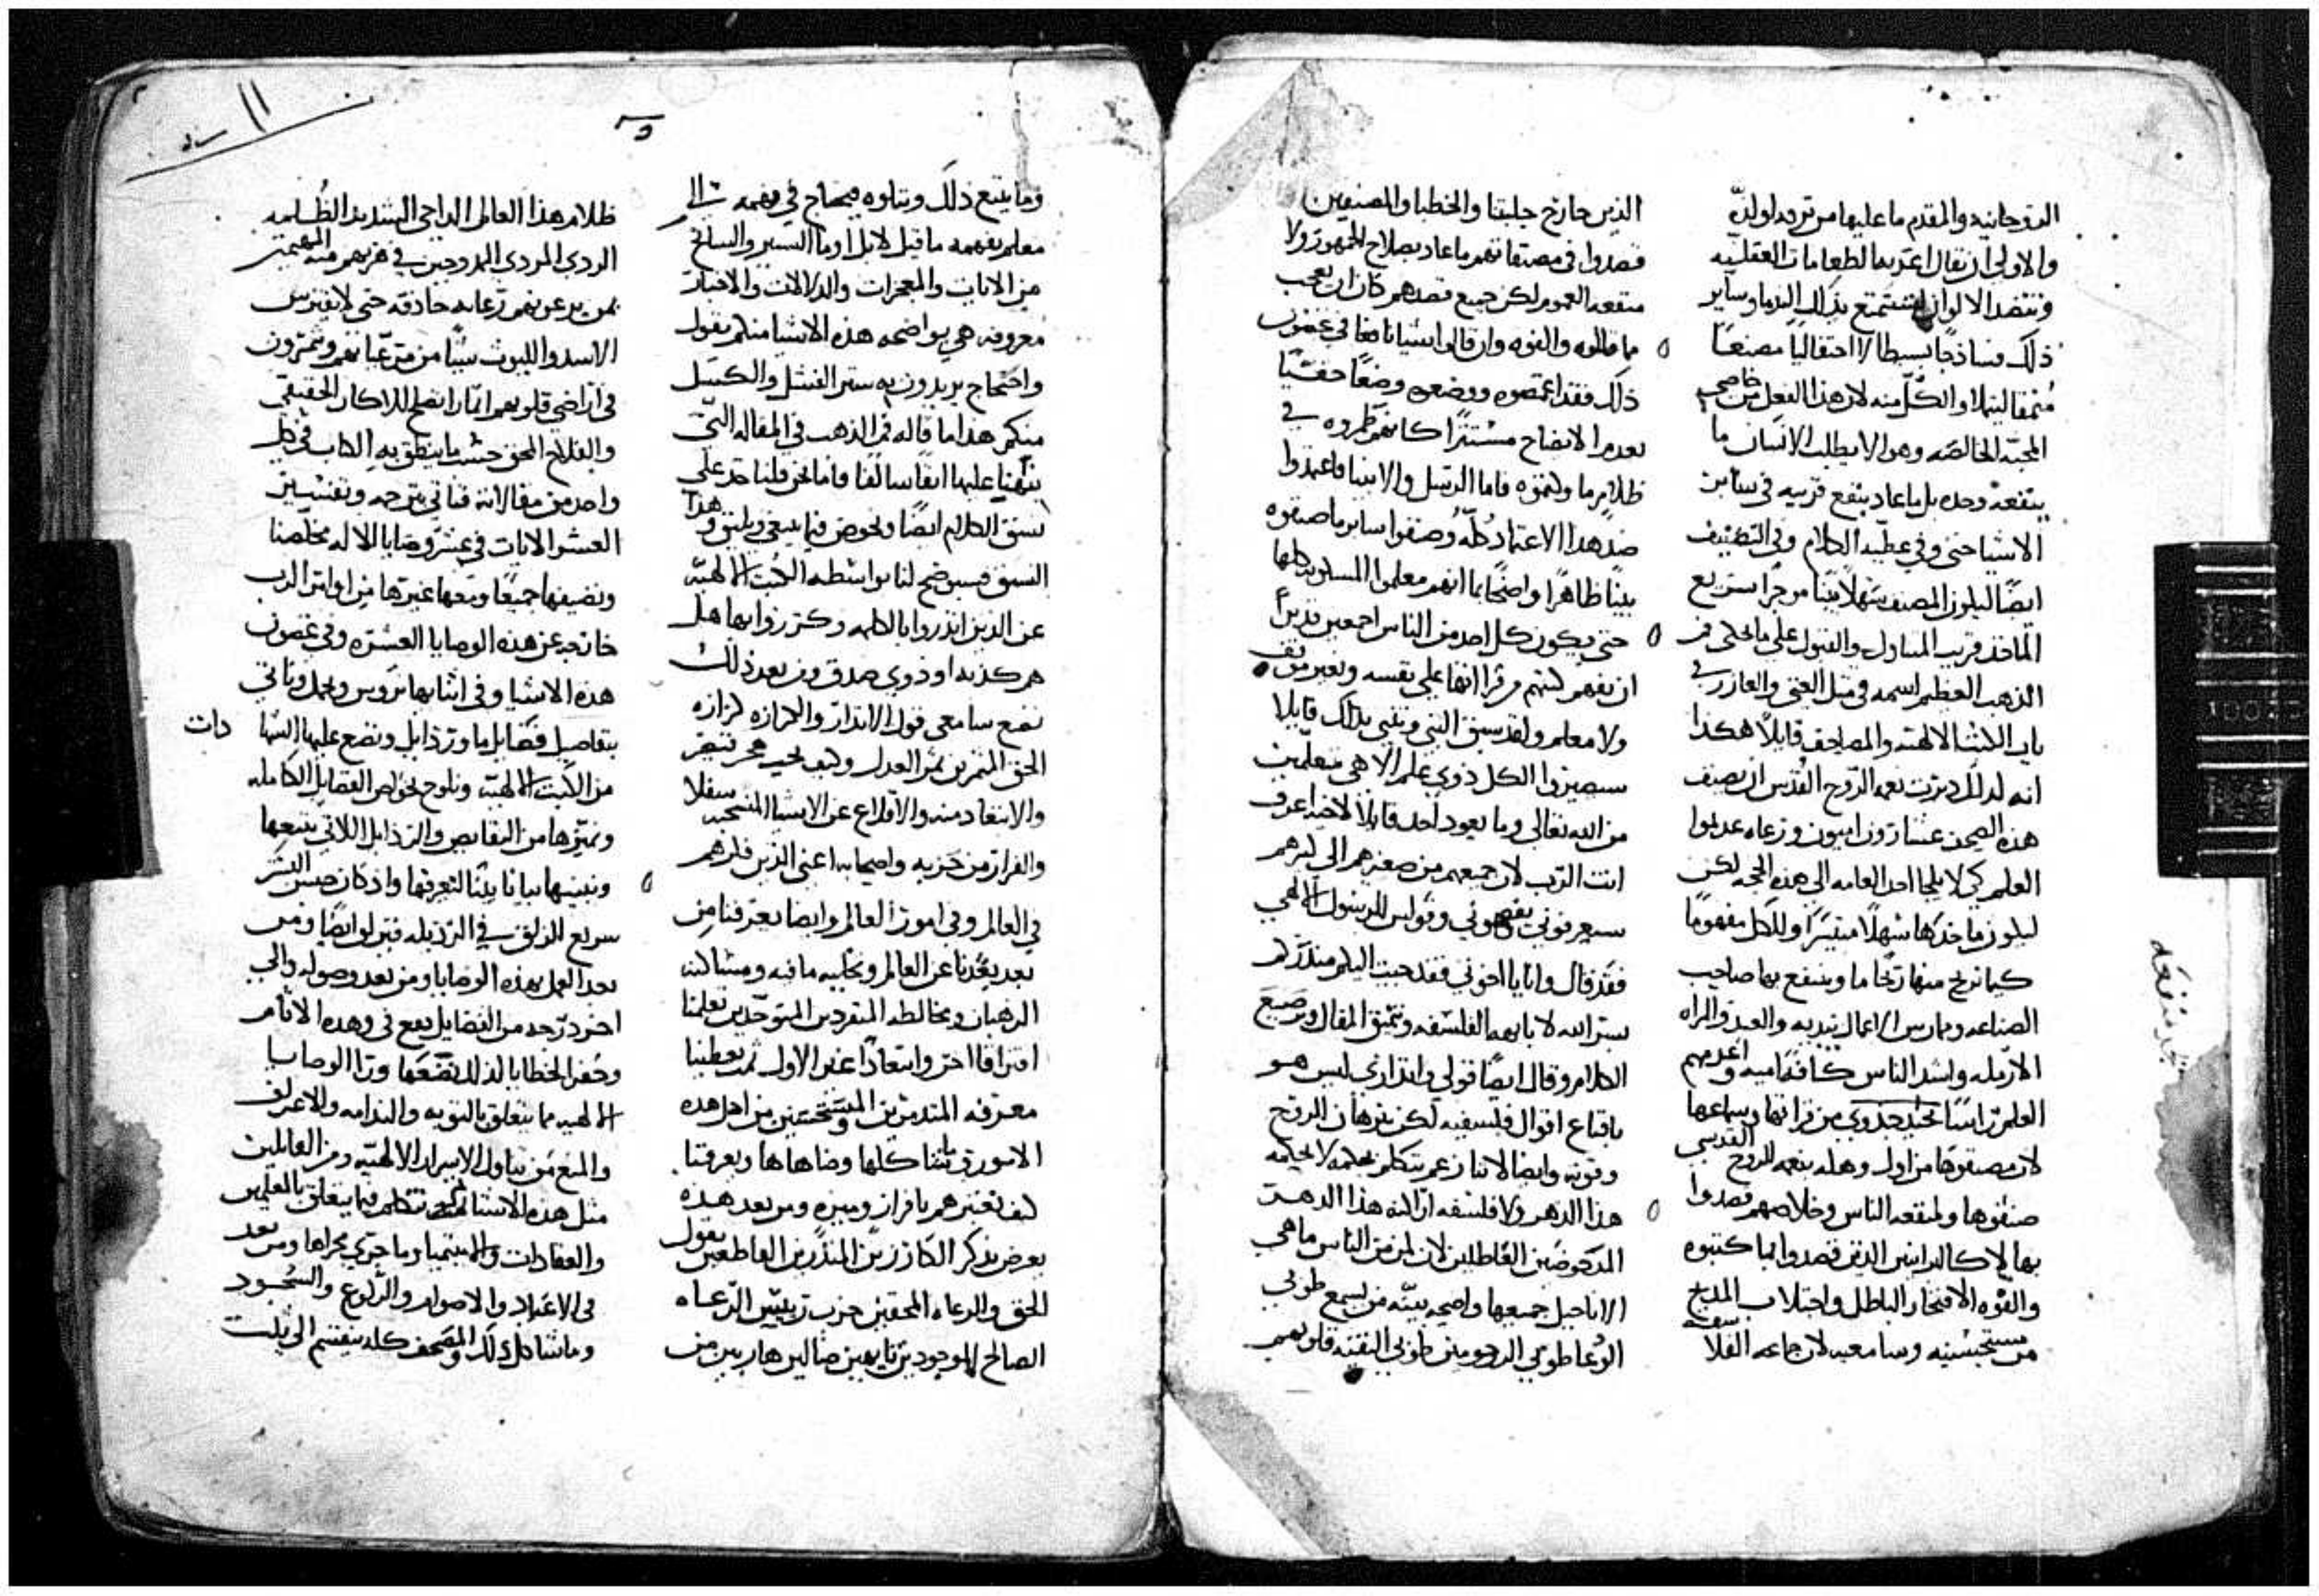 الروحانيه والمقدم ما عليها من تردد لولد
والاولى ان يقال اعتر بها لطعامات العقليه
وتنضد الالوان لتستمتع بذلك البدما وساير
ذلك فساذجًا بسيطا لا احتفاليًا مصنعا
المحبه الخالصه وهو الا يطلب الانسان ما
ينفعه وحده بل ما عاد بنفع قريبه في ساير
الاشيا حتى وفي عطيه الكلام وفي التصنيف
ايضًا ليكون المصنف سهلا بينا موجزًا سريع
الماخذ قريب المتناول والقبول على ما حكى فم
الذهب العظيم اسمه في مثل الغني والعازر في
باب الاشيا الالهيه والمصاحف قايلا هكذا
انه لذلك دبرت نعمه الروح القدس ان يصنف
هذه الصحف عشارون واميون ورعاه عدموا
العلم كي لا يلجا احد العامه الى هذه الحجه لكن
ليكون ماخذها سهلا متيسرا وللكل مفهومًا
كيما يربح منها ربحًا ما وينتفع بها صاحب
الصناعه وممارس الاعمال بيديه والعبد والمراه
الارمله واشد الناس كافة اميه واعدمهم
العلم راسًا يحتد جدوي من قراتها وسماعها
لان مصنفوها من اول وهله بنعمه الروح القدسي
صنفوها ولمنفعه الناس وخلاصهم قصدوا
بها لا كالبرانيين الذين قصدوا بما كتبوه
والفوه الافتخار الباطل واجتلاب المديح
من مستحسنيه وسامعيه لان جماعه الفلاسفه
الذين خارج جليقتا والخطبا والمصنفين
قصدوا في مصنفاتهم ما عاد بصلاح الجمهور ولا
منفعه العموم لكن جميع قصدهم كان ان يعجب
ما قالوه والفوه وان قالوا شيا نافعا في غضون
ذلك فقد اغمضوه ووضعوه وضعًا خفيًا
بعدم الاتضاح مستترًا كانهم طمروه في
ظلام ما وكتموه فاما الرسل والانبيا فاعتمدوا
ضد هذا الاعتماد كله وصنفوا ساير ما صنفوه
بينًا ظاهرًا واضحًا بما انهم معلموا المسكونه كلها
حتى يكون كل احد من الناس اجمعين قديرًا
ان يفهم كتبهم مرقرا انها على نفسه وبغير موقف
ولا معلم ولقد سبق النبي وتنبي بذلك قايلا
سيصيروا الكل ذوي علم الاهي متعلمين
من الله تعالى وما يعود احد قايلا لاخيه اعرف
انت الرب لان جميعهم من صغيرهم الى كبيرهم
سيعرفوني يفهموني وبولس الرسول الالهي
فقد قال وانا يا اخوتي فقد جيت اليكم منذركم
بسر الله لا بابهه الفلسفه وتنميق المقال وترصيع
الكلام وقال ايضًا قولي وانذاري ليس هو
باقناع اقوال فلسفيه لكن ببرهان الروح
وقوته وايضا لاننا زعم نتكلم بحكمه لا بحكمه
هذا الدهر ولا فلسفه اراكنه هذا الدهر
المدحوضين الفاطلين لان لمن من الناس ما هي
الاناجيل جميعها واضحه بينه من يسمع طوبى
الودعا طوبى الرحومين طوبى النقيه قلوبهم
وما يتبع ذلك ويتلوه يحتاج في فهمه الى
معلم يفهمه ما قيل لا بل او ما السير والسابح
من الايات والمعجزات والدلالات والاخبار
معروفه هي بواضحه هذه الاشيا منكم بقول
واحتجاج يريدون به ستر الفشل والكسل
منكم هذا ما قاله فم الذهب في المقاله التي
نبهنا عليها انفًا سالفًا واما نحن فلنا حد على
نسق الكلام ايضًا ونخوض فيما ينبغي ويليق وهذا
النسق فسيوضح لنا بواسطه الكتب الالهيه
عن الذين انذروا بالكلمه وكرزوا بها هل
هم كذبه او ذوي صدق ومن بعد ذلك
نضع سامعي قول الانذار والكرازه كرازه
الحق المثمرين ثمر العدل وكيف يجب هجر سفلا
والابتعاد منه والاقلاع عن الاشيا المستحبه
والفرار من حزبه واصحابه اعني الذين فكرهم
في العالم وفي امور العالم وايضا يعرفنا من
بعد بعدنا عن العالم وتخليه ما فيه ومساكنه
الرهبان ومخالطه المنفردين المتوحدين تعلمنا
افتراقا اخر وابتعادًا غير الاول ثم تعطينا
معرفه المتدرين المستحقين من اهل هذه
الامور وتبينا كلها وضاهاها وتعرفنا
كيف نعتبرهم بافراز وميزه ومن بعد هذه
يعرض بذكر الكارزين المنذرين القاطعين بقول
الحق والرعاه المحقين حزب رييس الرعاه
الصالح الموجودين تايهين ضالين هاربين من
ظلام هذا العالم الداجي الشديد الظلمه
الردي المردي المدوجين في هزيهم منه المهتمين
بمن يرعونهم رعايه حاذقه حتى لا يفترس
الاسد والليوث شيًا من مرعياتهم ويثمرون
في اراضي قلوبهم اثمارًا تصلح للاكار الحقيقي
والفلاح المحق حسب ما ينطق به الكتاب في كل
واحد من مقالاته فناتي بترجمه وتفسير
العشر الايات في عشر وصايا الاله مخلصنا
ونضيفها جميعًا ومعها غيرها من اوامر الرب
خارجه عن هذه الوصايا العشره وفي غضون
هذه الاشيا وفي اثنايها نروس ونجمل وناتي
بتفاصيل فضايل ما ورذايل ونضع عليها الشهادات
من الكتب الالهيه ونلوح بخواص الفضايل الكامله
ونميزها من النقايص والرذايل اللاتي يتبعها
ونبينها بيانا بينًا لتعرفها واذ كان جنس البشر
سريع الزلق في الرذيله فترى ايضًا ومن
بعد العمل بهذه الوصايا ومن بعد وصوله والي
اخر درجه من الفضايل يقع في وهده الاثام
وحفر الخطايا لذلك نضع وراءها الوصايا
الالهيه مما يتعلق بالتوبه والندامه والاعتراف
والمنع من تناول الاسرار الالهيه ومن القايلين
مثل هذه الاشيا نتكلم فيما يتعلق بالمعلمين
والعقادات وما جرى مجراها ومن بعد
في الاعياد والاصوام والركوع والسجود
وما شاكل ذلك والمصحف كله ينقسم الى ثلث